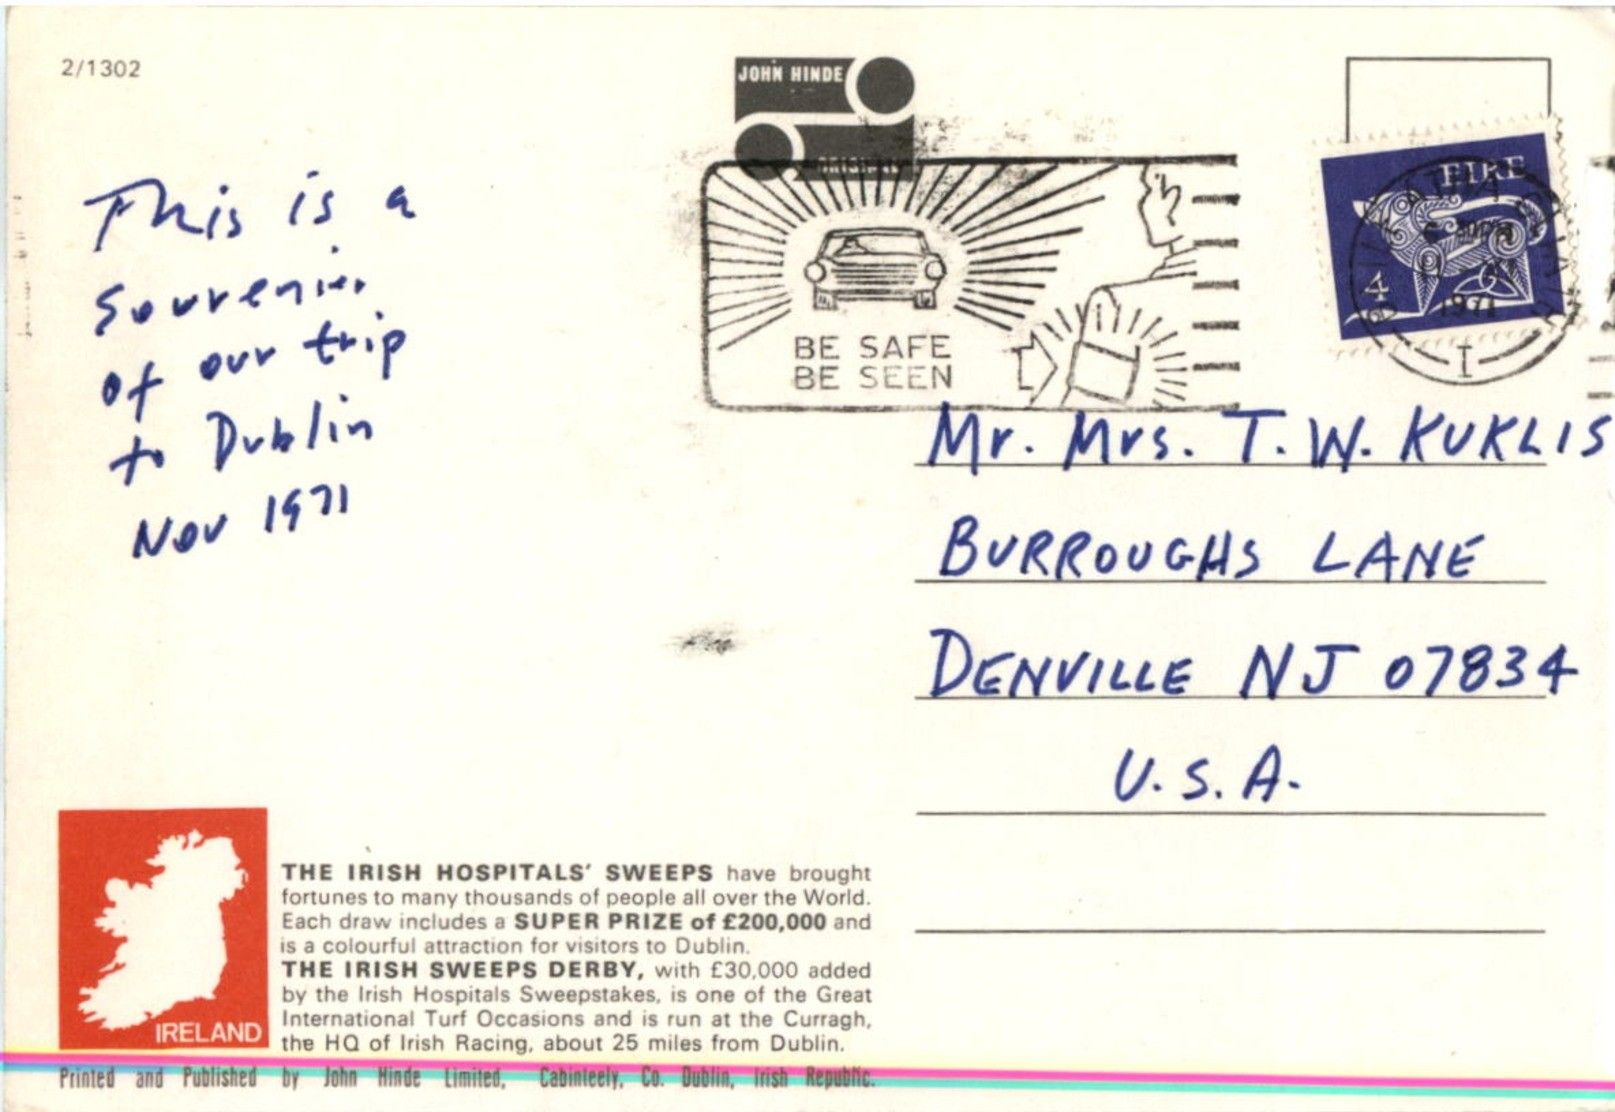 2/1302
JOHN HINDE
ORIGINAL
BE SAFE
BE SEEN
EIRE
4
1971
I
This is a
Souvenir
of our trip
to Dublin
Nov 1971
Mr. Mrs. T. W. KUKLIS
BURROUGHS LANE
DENVILLE NJ 07834
U.S.A.
IRELAND
THE IRISH HOSPITALS' SWEEPS have brought
fortunes to many thousands of people all over the World.
Each draw includes a SUPER PRIZE of £200,000 and
is a colourful attraction for visitors to Dublin.
THE IRISH SWEEPS DERBY, with £30,000 added
by the Irish Hospitals Sweepstakes, is one of the Great
International Turf Occasions and is run at the Curragh,
the HQ of Irish Racing, about 25 miles from Dublin.
Printed and Published by John Hinde Limited, Cabinteely, Co. Dublin, Irish Republic.